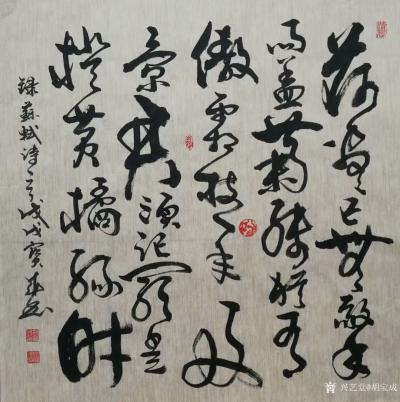 荷尽已無擎
雨盖菊残犹有
傲霜枝一年好
景君须记最是
橙黄橘绿时
録蘇轼诗一首戊戌寶成书
兴艺堂@胡宝成